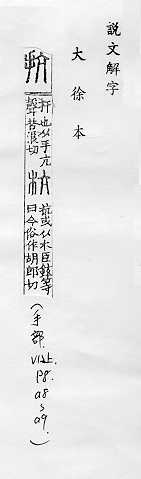 説文解字
大徐本
抗
扞也从手亢
聲苦浪切
杭
抗或从木臣鉉等
曰今俗作胡郎切
(手部
P8.
a8
~
a9.)